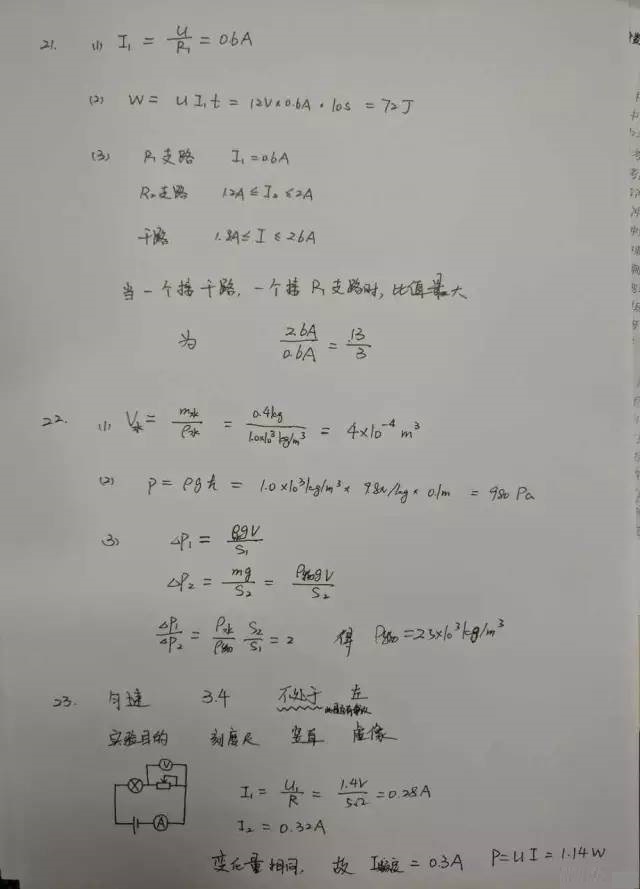 21. (1) I₁ = U/R₁ = 0.6A
(2) W = UI₁t = 12V×0.6A·10s = 72J
(3) R₁支路 I₁=0.6A
R₂支路 1.2A ≤ I₂ ≤ 2A
干路 1.8A ≤ I ≤ 2.6A
当一个接干路,一个接R₁支路时,比值最大
为 2.6A/0.6A = 13/3
22. (1) V水 = m水/ρ水 = 0.4kg/1.0×10³kg/m³ = 4×10⁻⁴ m³
(2) P = ρgh = 1.0×10³kg/m³ × 9.8N/kg × 0.1m = 980 Pa
(3) ΔP₁ = ρgV/S₁
ΔP₂ = mg/S₂ = ρ物gV/S₂
ΔP₁/ΔP₂ = ρ水/ρ物 S₂/S₁ = 2 得 ρ物=2.5×10³kg/m³
23. 匀速 3.4 不处于 左
实验目的 刻度尺 竖直 虚像
V
X
A
I₁ = U₁/R = 1.4V/5Ω = 0.28A
I₂ = 0.32A
变化量相同,故 I额定 = 0.3A P=UI=1.14W